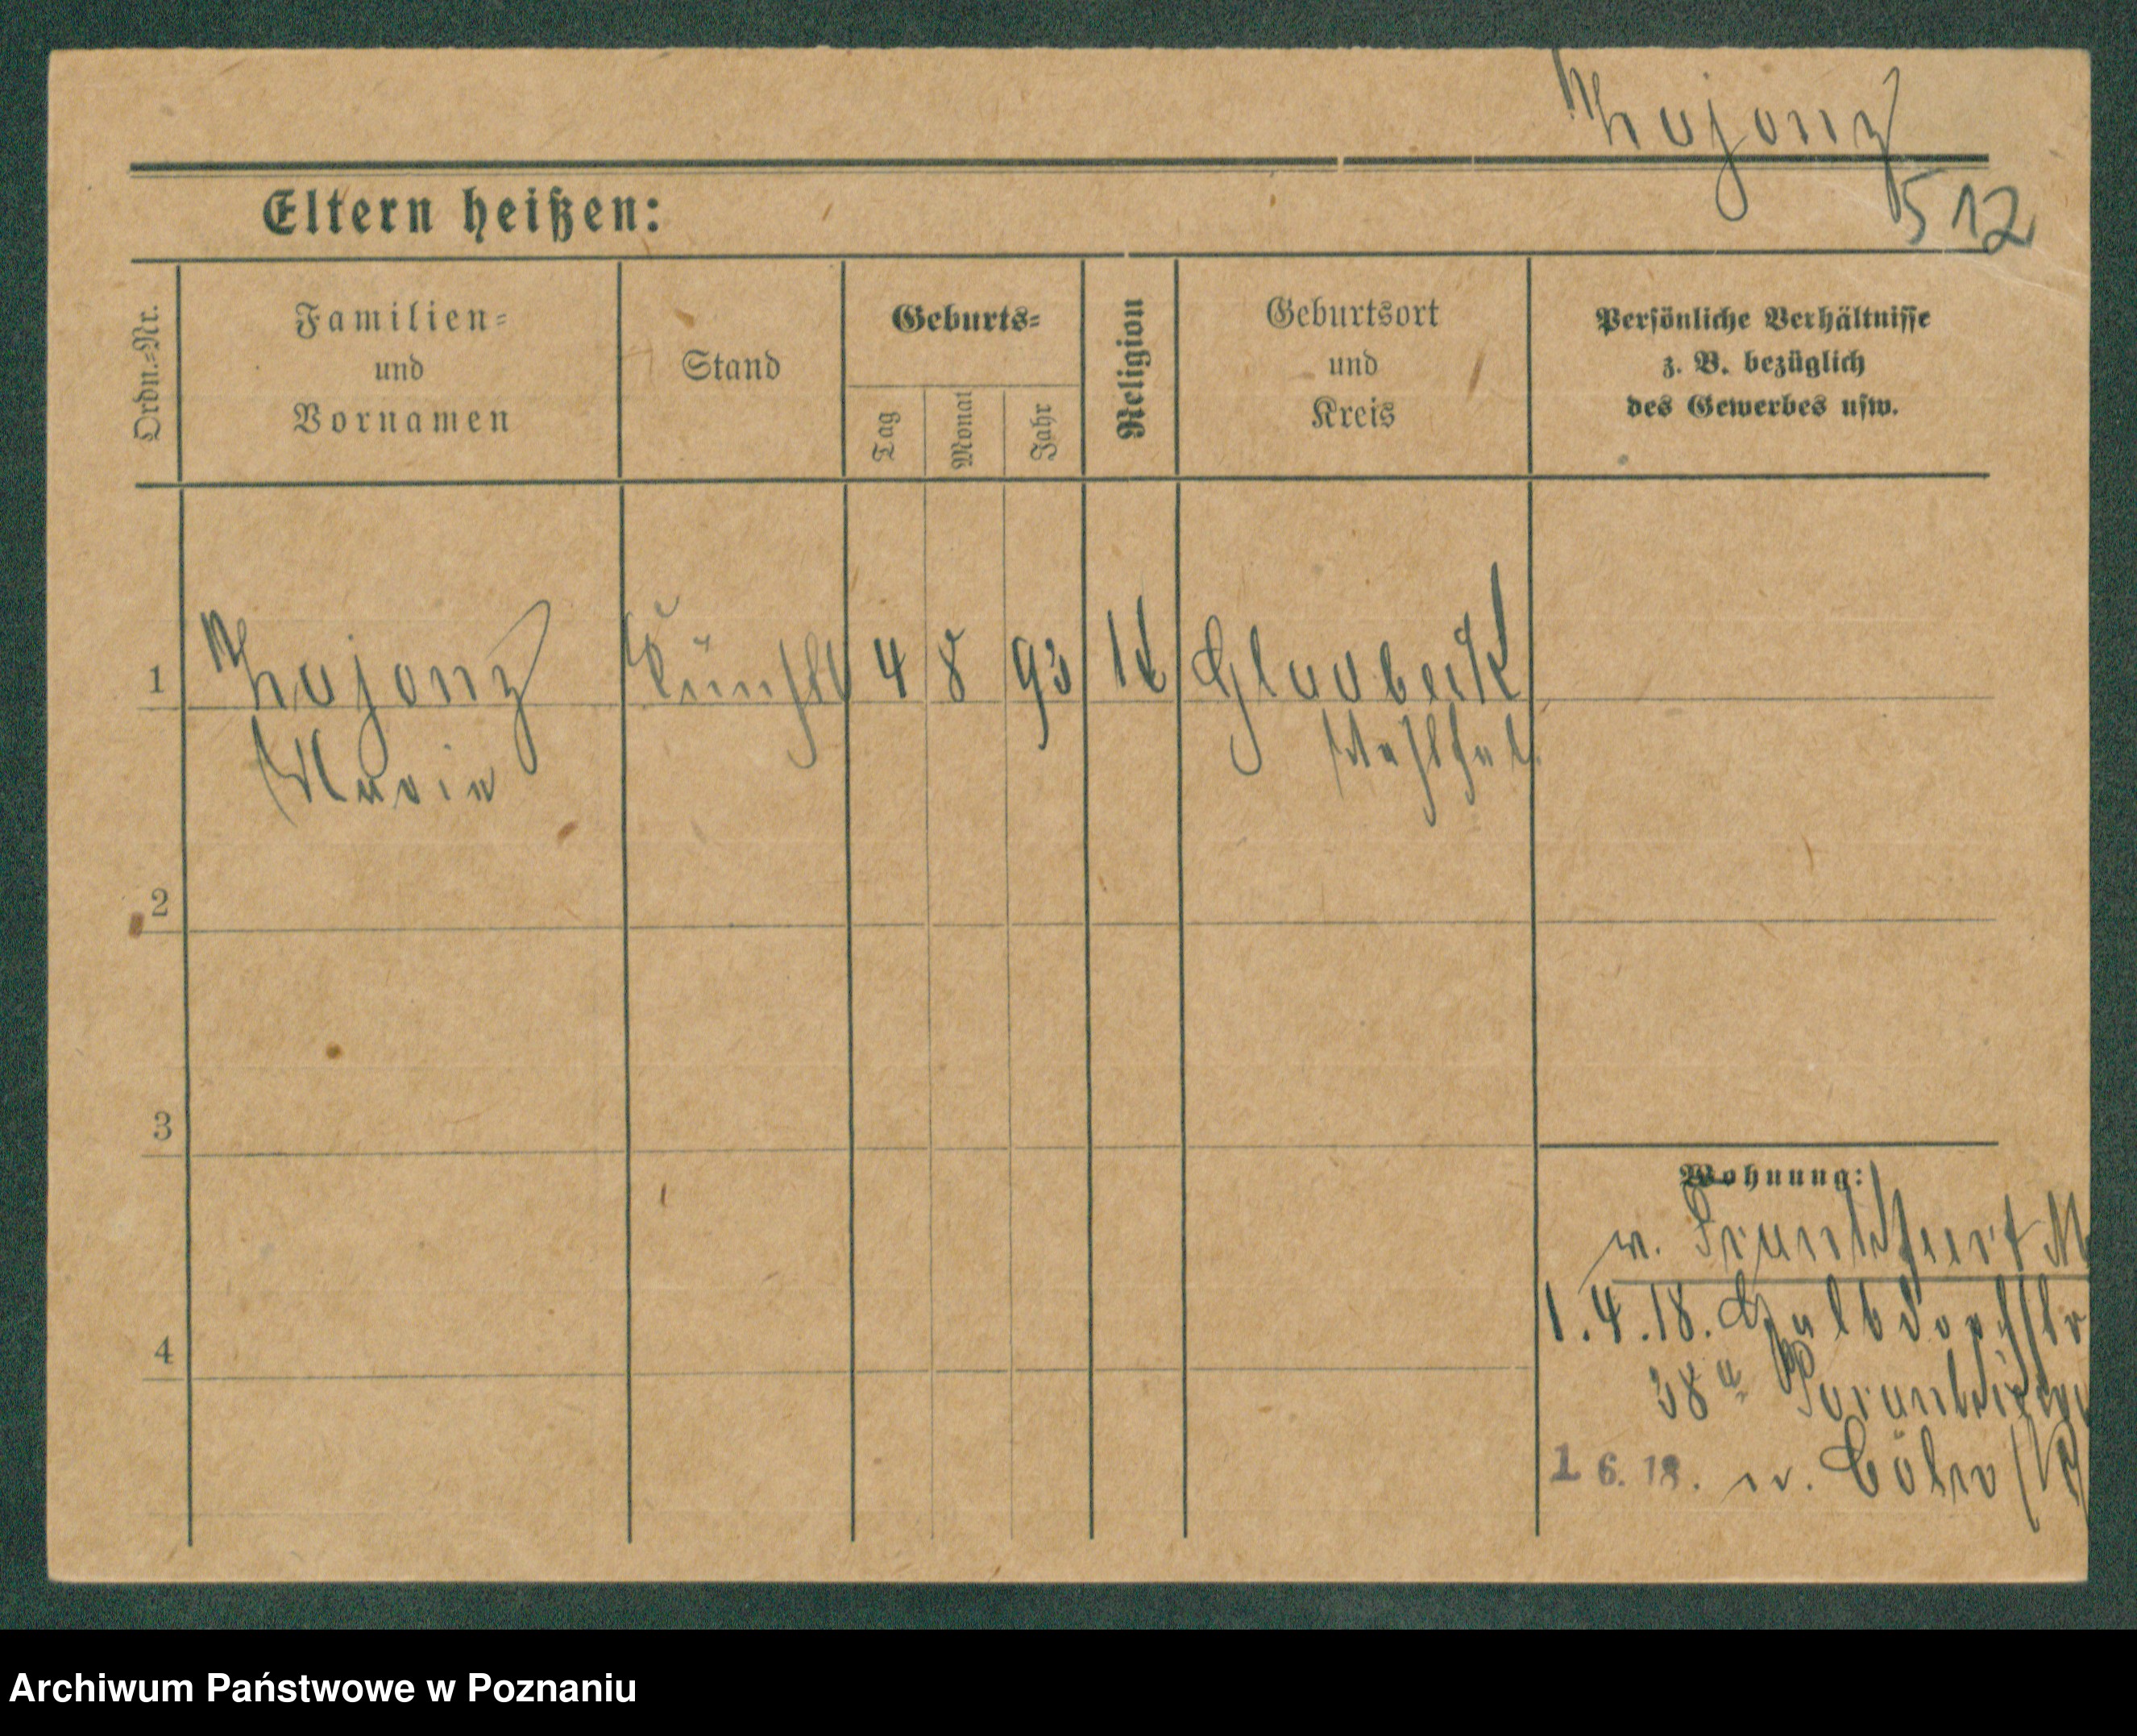 Kojonz
512
Eltern heißen:
Ordn.-Nr.
Familien-
und
Vornamen
Stand
Geburts-
Tag
Monat
Jahr
Religion
Geburtsort
und
Kreis
Persönliche Verhältnisse
z. B. bezüglich
des Gewerbes usw.
1
Kojonz
4
8
93
Gladbeck
Westfal.
Maria
2
3
4
Wohnung:
n. Frankfurt M
1.4.18.
38a
1 6. 18. n. Cöln
Archiwum Państwowe w Poznaniu